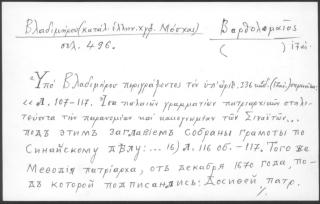 Βλαδιμήρου (κατάλ. ἑλλην. χγφ. Μόσχας)
σελ. 496.
Βαρθολομαῖος
( ) ιζ αι.
Ὑπὸ Βλαδιμήρου περιγράφοντος τὸν ὑπ' ἀριθ. 336 κώδ. (ιζ αι.)
«Λ. 107-117. Ἴσα παλαιῶν γραμμάτων πατριαρχικῶν σταλέντων
τὴν παρανομίαν καὶ τῶν Σιναϊτῶν...
подъ этимъ заглавiемъ собраны грамоты по
Синайскому дѣлу: ... 16) л. 116 об. - 117. Того же
Меѳодiя патрiарха, отъ декабря 1670 года, по-
дъ которой подписались: Досиѳей патр.